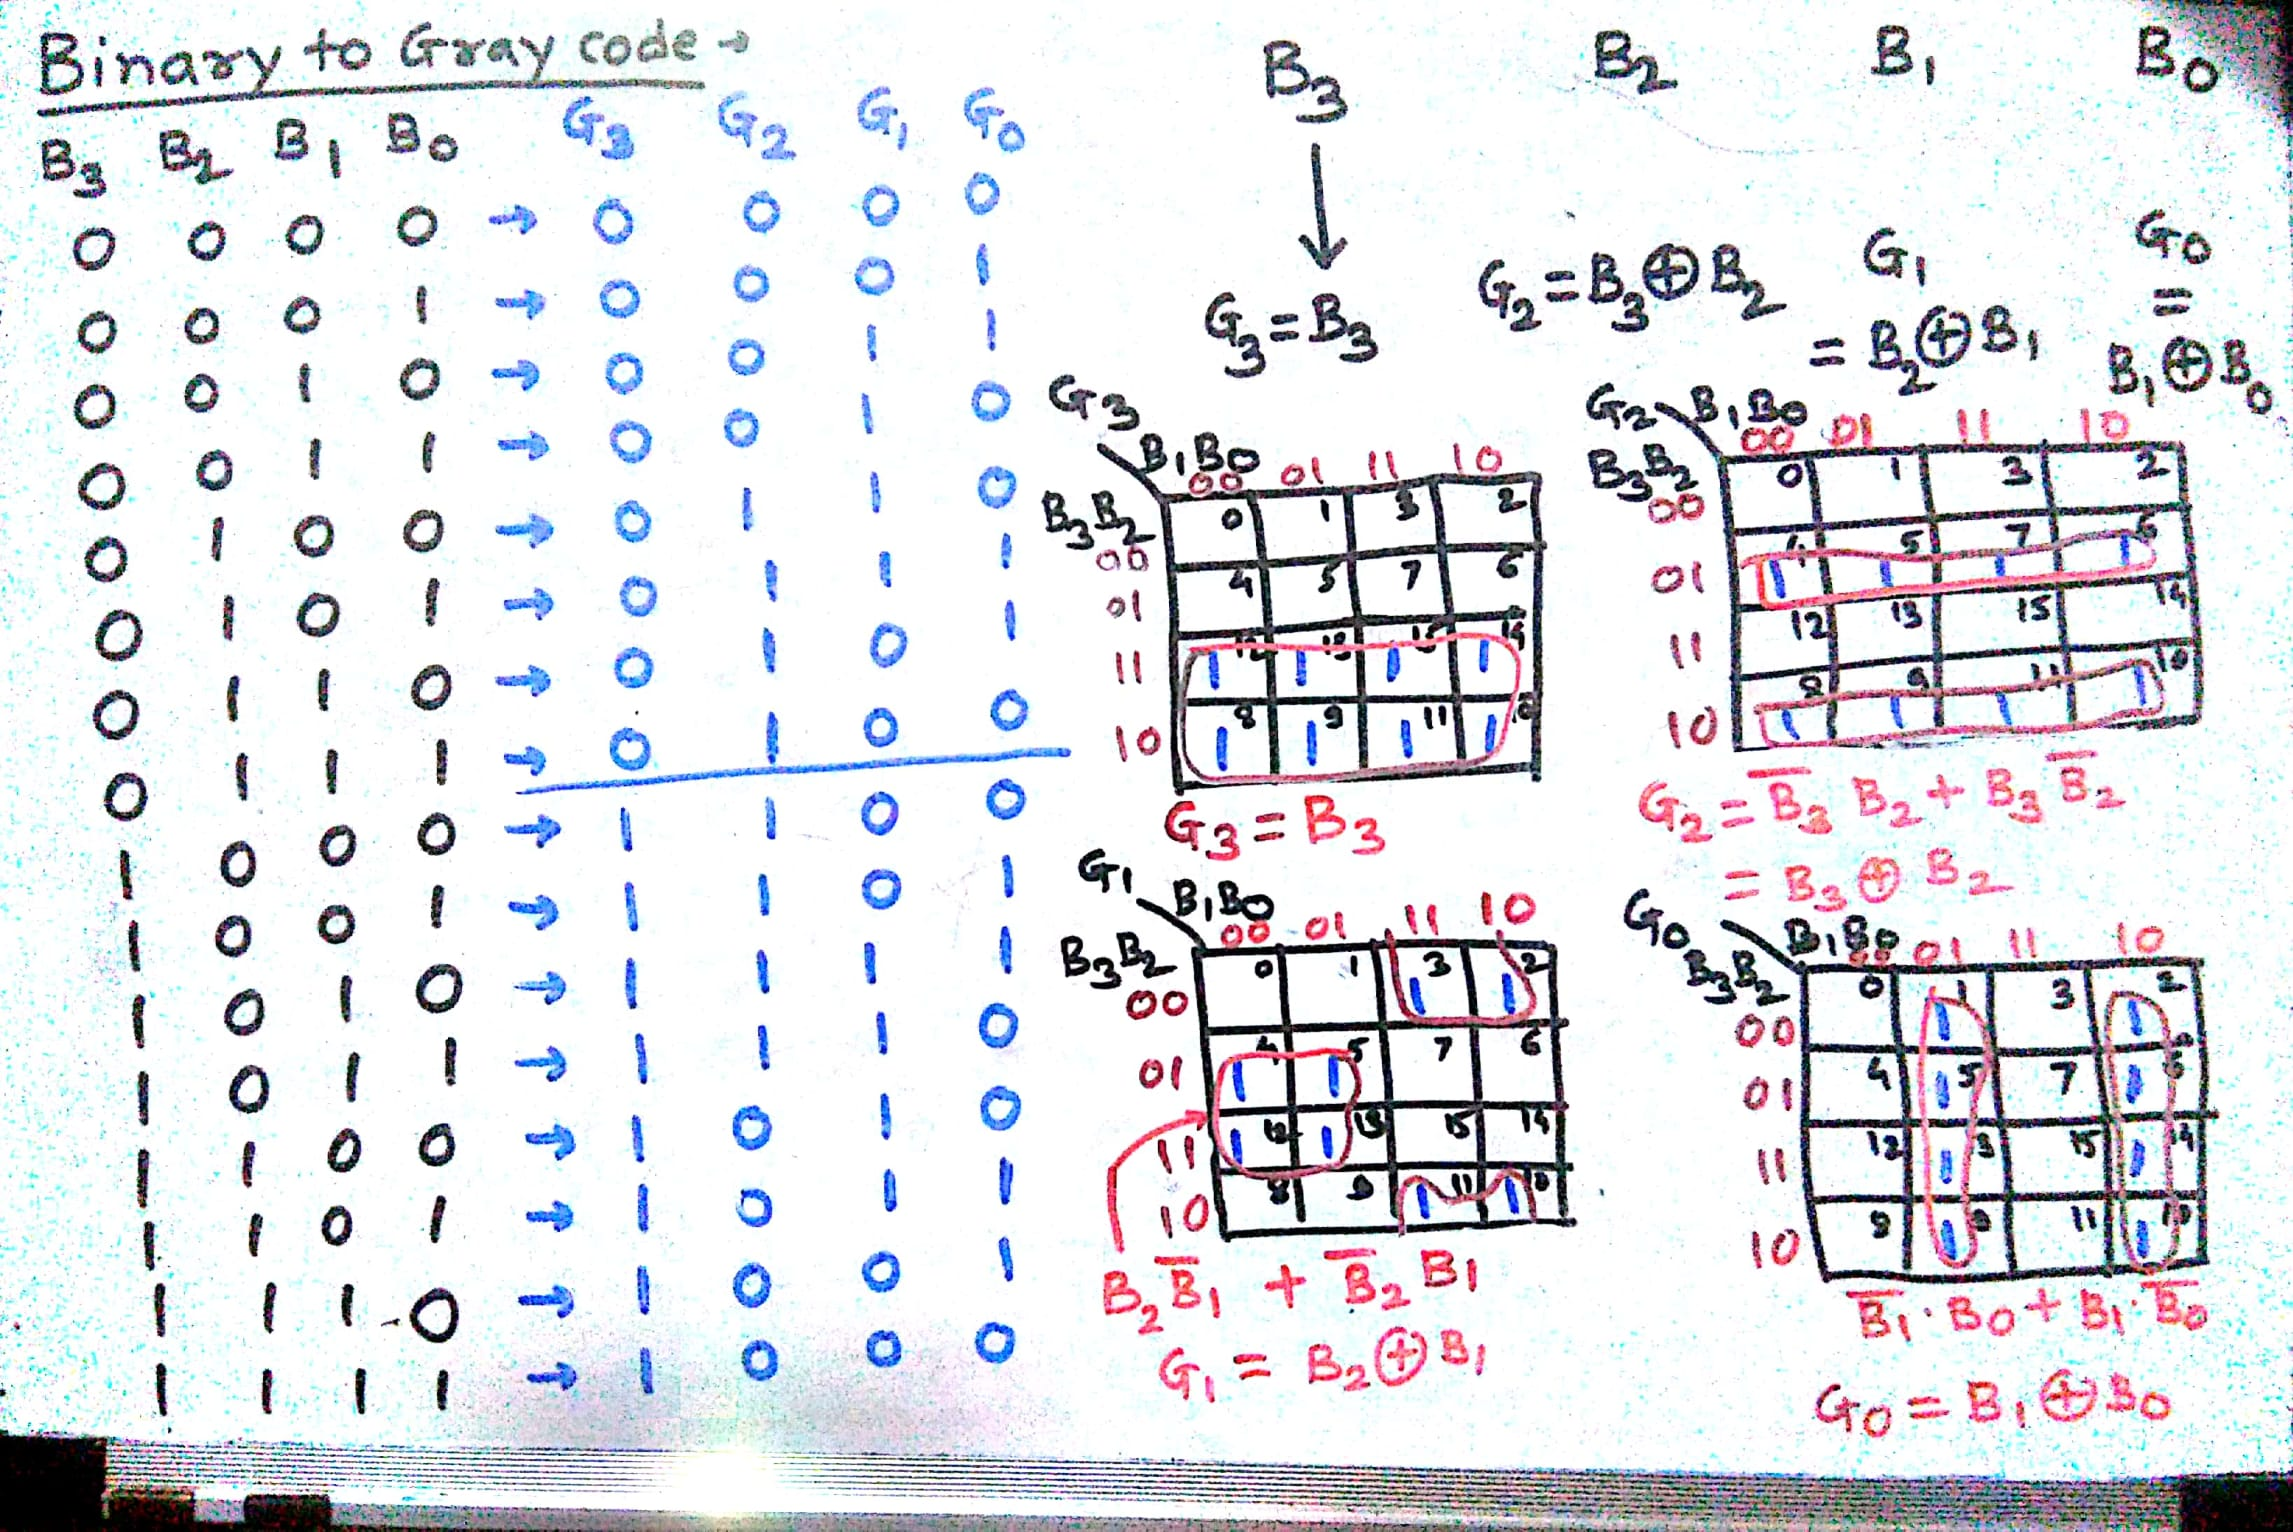 Binary to Gray code →
B₃ B₂ B₁ B₀ G₃ G₂ G₁ G₀
0 0 0 0 → 0 0 0 0
0 0 0 1 → 0 0 0 1
0 0 1 0 → 0 0 1 1
0 0 1 1 → 0 0 1 0
0 1 0 0 → 0 1 1 0
0 1 0 1 → 0 1 1 1
0 1 1 0 → 0 1 0 1
0 1 1 1 → 0 1 0 0
1 0 0 0 → 1 1 0 0
1 0 0 1 → 1 1 0 1
1 0 1 0 → 1 1 1 1
1 0 1 1 → 1 1 1 0
1 1 0 0 → 1 0 1 0
1 1 0 1 → 1 0 1 1
1 1 1 0 → 1 0 0 1
1 1 1 1 → 1 0 0 0
B₃ B₂ B₁ B₀
↓
G₃ = B₃
G₂ = B₃ ⊕ B₂
G₁
= B₂ ⊕ B₁
G₀
=
B₁ ⊕ B₀
G₃
B₁B₀
00 01 11 10
B₃B₂
00 0 1 3 2
01 4 5 7 6
11 1 12 1 13 1 15 1 14
10 1 8 1 9 1 11 1 10
G₃ = B₃
G₂ B₁B₀
00 01 11 10
B₃B₂
00 0 1 3 2
01 1 4 1 5 1 7 1 6
11 12 13 15 14
10 1 8 1 9 1 11 1 10
G₂ = B̅₃ B₂ + B₃ B̅₂
= B₃ ⊕ B₂
G₁
B₁B₀
00 01 11 10
B₃B₂
00 0 1 1 3 1 2
01 1 4 1 5 7 6
11 1 12 1 13 15 14
10 8 9 1 11 1 10
B₂B̅₁ + B̅₂B₁
G₁ = B₂ ⊕ B₁
G₀
B₁B₀
00 01 11 10
B₃B₂
00 0 1 1 3 1 2
01 4 1 5 7 1 6
11 12 1 13 15 1 14
10 8 1 9 11 1 10
B̅₁·B₀ + B₁·B̅₀
G₀ = B₁ ⊕ B₀